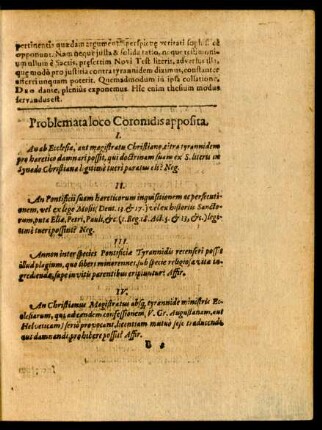 pertinentis quadam argumenti perspicuæ veritati sophistice
opponunt. Nam neque justa & solida ratio, neque testimoni-
um ullum è Sacris, præsertim Novi Test literis, adversus ista,
quæ modò pro justitia contra tyrannidem diximus, constanter
afferri unquam poterit. Quemadmodum in ipsa collatione,
Deo dante, plenius exponemus. Hîc enim thesium modus
servandus est.
Problemata loco Coronidis apposita.
I.
An ab Ecclesia, aut magistratu Christiano, citra tyrannidem
pro hæretico damnari possit, qui doctrinam suam ex S. literis in
Synodo Christiana legitimè tueri paratus est? Neg.
II.
An Pontificii suam hæreticorum inquisitionem ac persecuti-
onem, vel ex lege Mosis Deut. 13 & 17. vel ex historiis Sancto-
rum, puta Eliæ, Petri, Pauli, &c. (1. Reg. 18. Act. 5. & 13, &c.) legi-
timè tueri possint? Neg.
III.
Annon inter species Pontificiæ Tyrannidis recenseri possit
illud plagium, quo liberi minorennes, sub specie religiosæ vitæ in-
grediendæ, sæpe invitis parentibus eripiuntur? Affir.
IV.
An Christianus Magistratus absq; tyrannide ministris Ec-
clesiarum, qui ad eandem confessionem, V. Gr. Augustanam, aut
Helveticam) seriò provocant, licentiam mutuò sese traducendi,
aut damnandi prohibere possit? Affir.